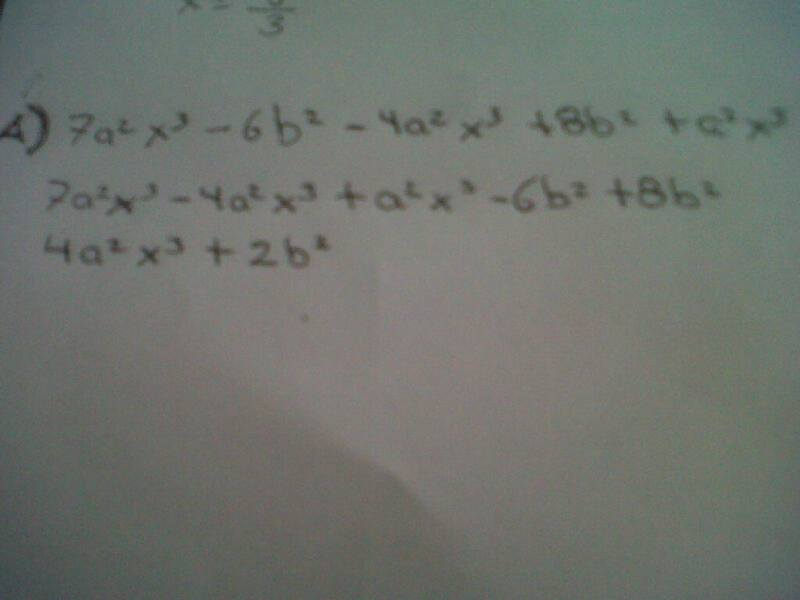 x = /3
A) 7a² x³ - 6b² - 4a² x³ + 8b² + a² x³
7a²x³ - 4a² x³ + a² x³ - 6b² + 8b²
4a² x³ + 2b²